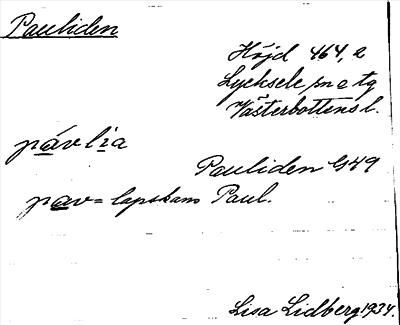 Pauliden
Höjd 464, 2
Lycksele sn o tg
Västerbottens l.
pávlia
Pauliden G49
pav = lapskans Paul.
Lisa Lidberg 1934.